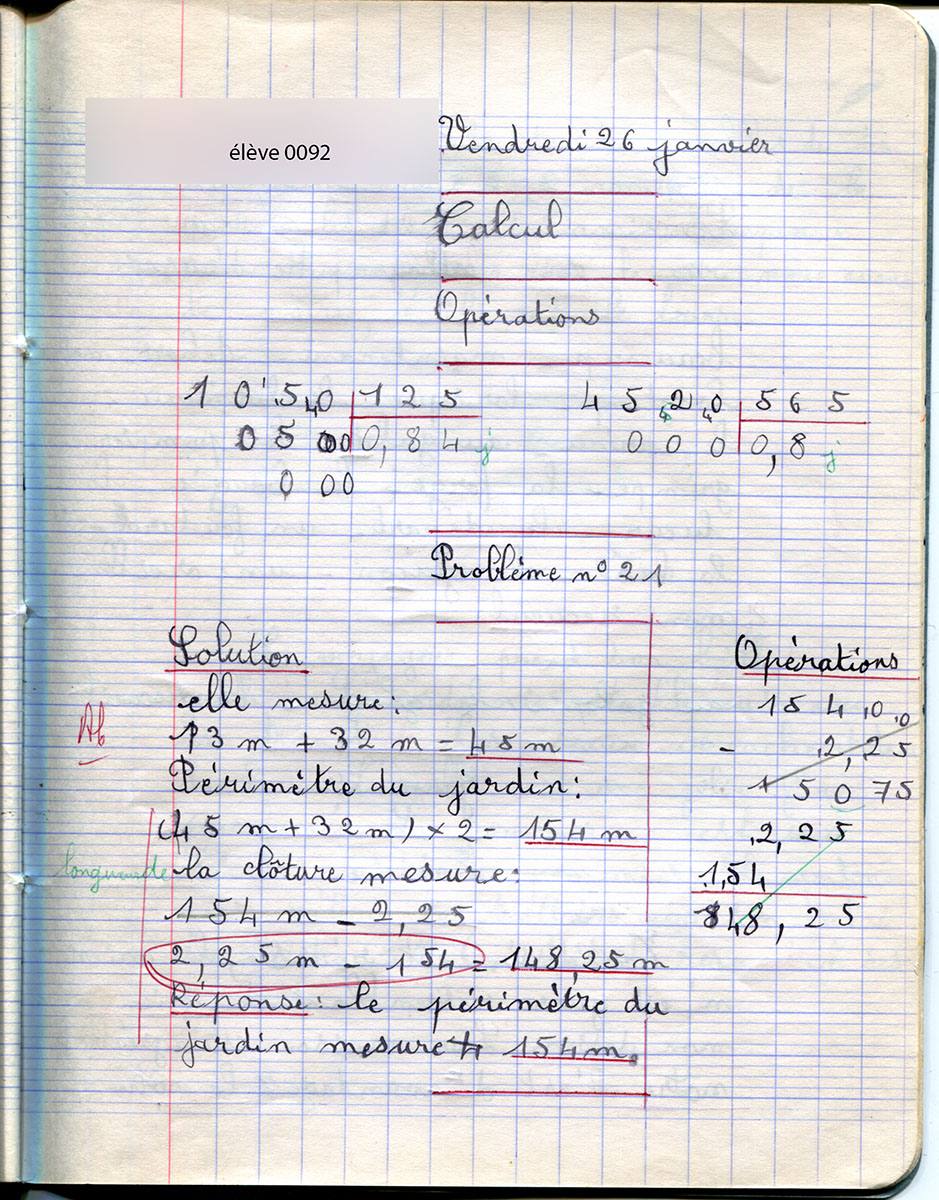 élève 0092
Vendredi 26 janvier
Calcul
Opérations
1 0 5,40 1 2 5
0 5 00 0,84 j
0 00
4 5 2 0 5 6 5
0 0 0 0,8 j
Problème n° 21
Solution
elle mesure:
Ab
13 m + 32 m = 45 m
Périmètre du jardin:
(45 m + 32 m) × 2 = 154 m
longueur de la clôture mesure:
154 m - 2,25
2,25 m - 154 = 148,25 m
Réponse: le périmètre du
jardin mesure 154 m.
Opérations
1 5 4 0 0
- 2,25
1 5 0 75
2,25
1,54
148,25